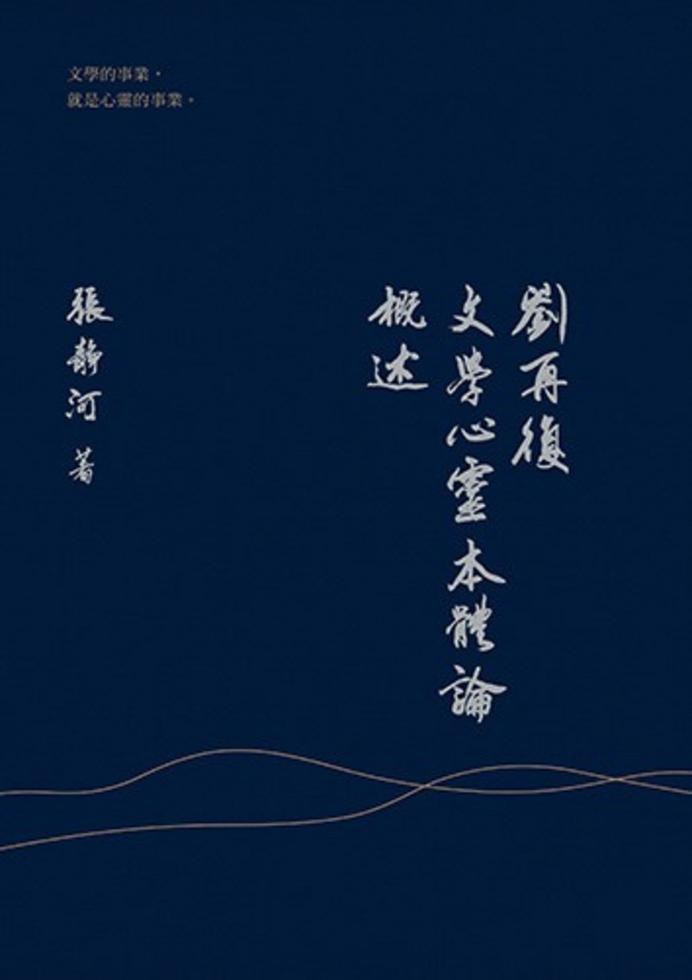 文學的事業，
就是心靈的事業。
劉再復
文學心靈本體論
概述
張靜河 著